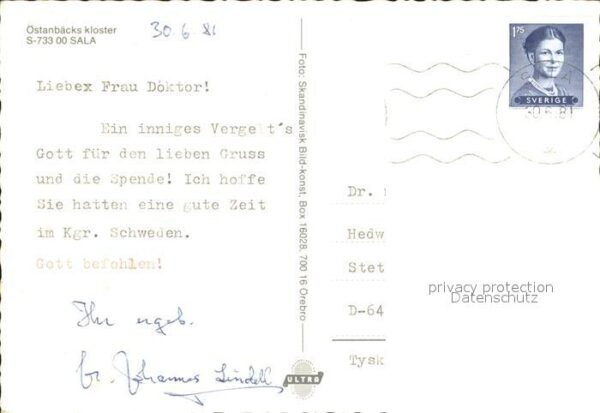 Östanbäcks kloster
S-733 00 SALA
30.6.81
Liebex Frau Doktor!
Ein inniges Vergelt's
Gott für den lieben Gruss
und die Spende! Ich hoffe
Sie hatten eine gute Zeit
im Kgr. Schweden.
Gott befohlen!
Ihr ergeb.
br. Johannes Lindell
Foto: Skandinavisk Bild-konst, Box 16028, 700 16 Örebro
ULTRA
1.75
SVERIGE
SALA
30.6.81
Dr.
Hedw
Stet
D-64
Tysk
privacy protection
Datenschutz